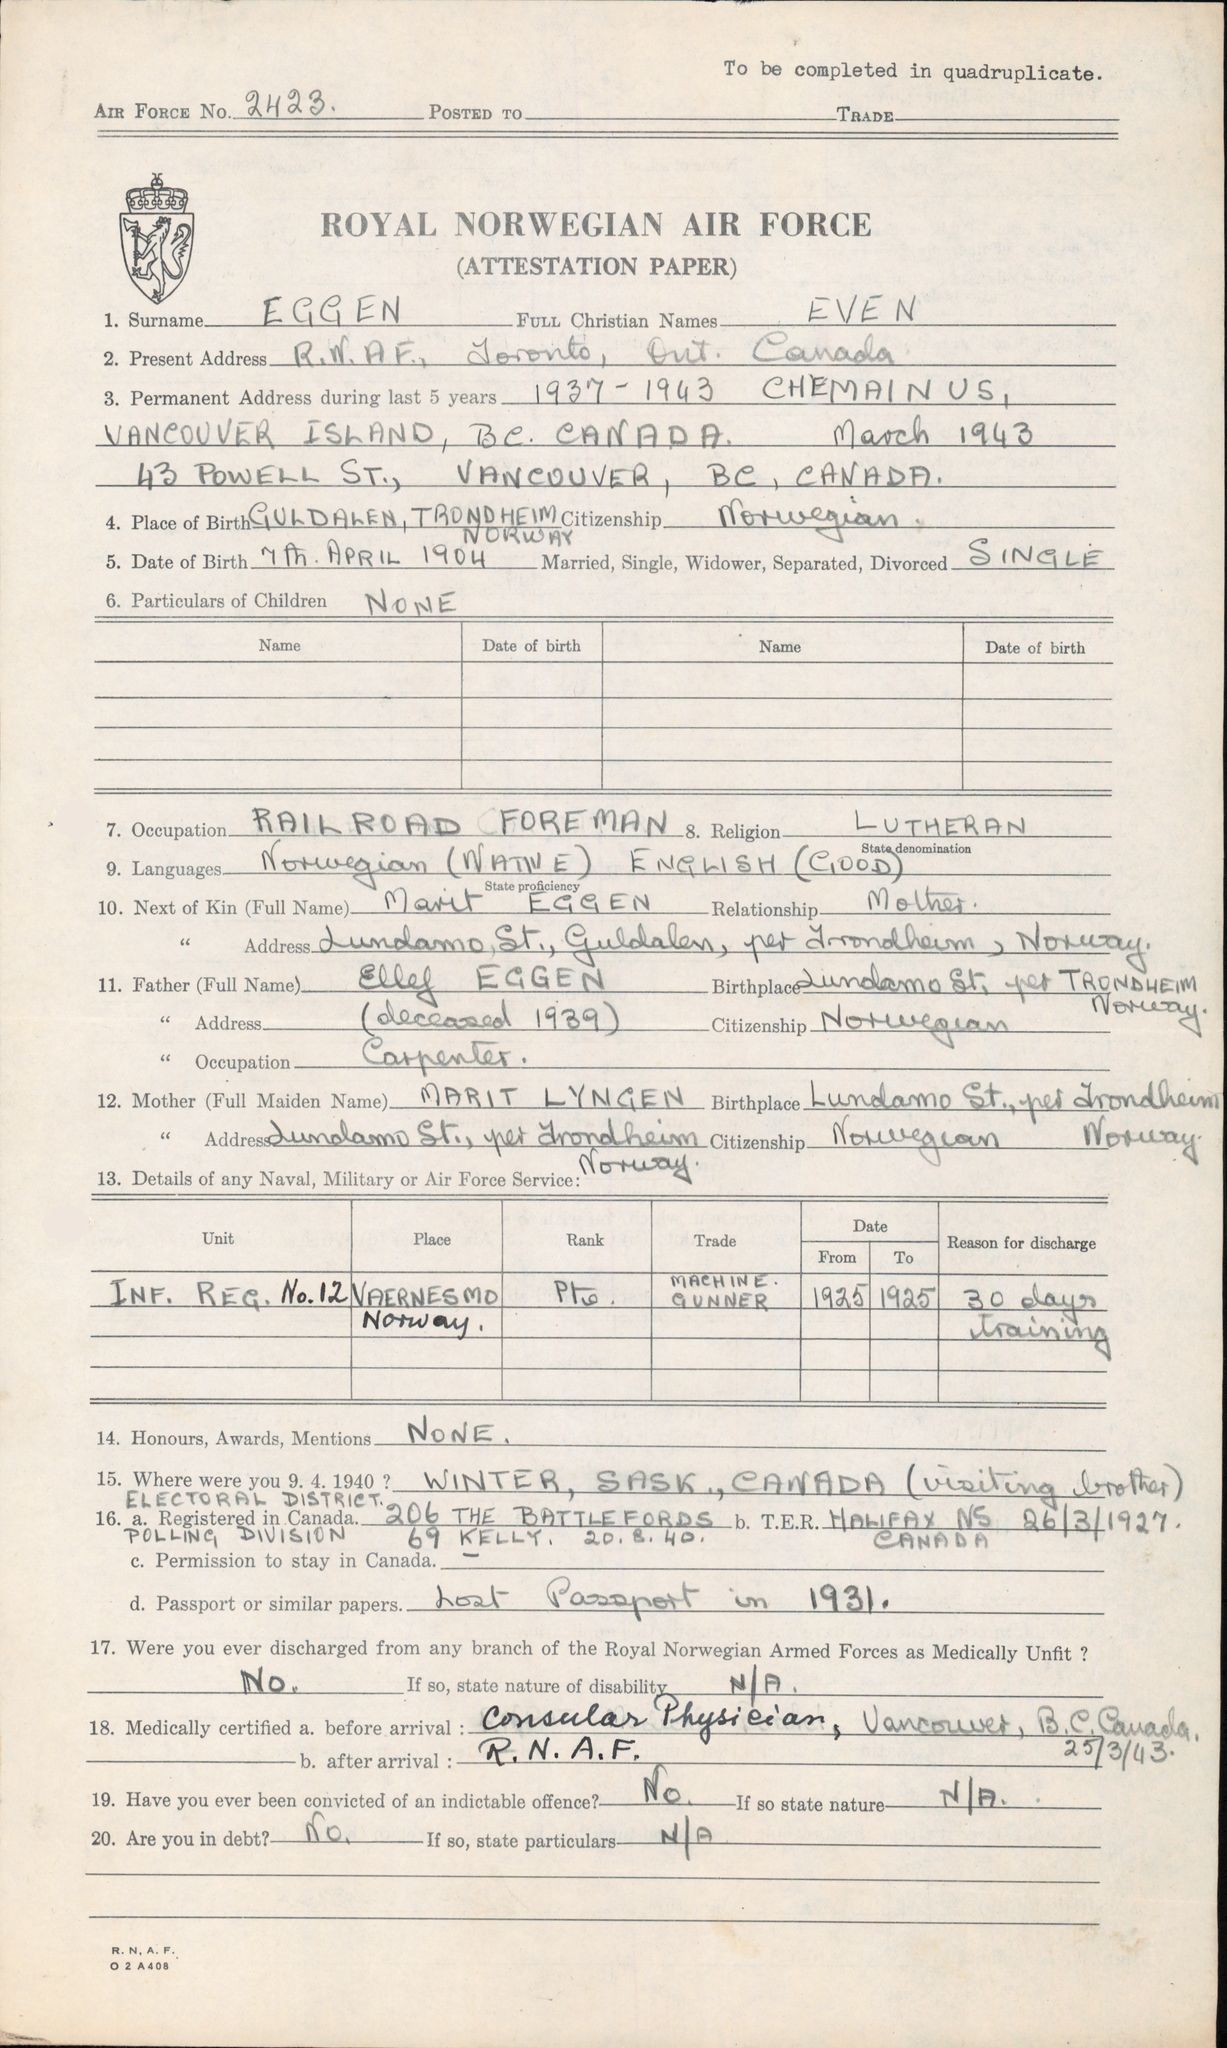 To be completed in quadruplicate.
AIR FORCE NO. 2423. POSTED TO TRADE
ROYAL NORWEGIAN AIR FORCE
(ATTESTATION PAPER)
1. Surname EGGEN FULL Christian Names EVEN
2. Present Address R.N.A.F., Toronto, Ont. Canada
3. Permanent Address during last 5 years 1937-1943 CHEMAINUS,
VANCOUVER ISLAND, BC. CANADA. March 1943
43 POWELL ST., VANCOUVER, BC, CANADA.
4. Place of Birth GULDALEN, TRONDHEIM Citizenship Norwegian.
NORWAY
5. Date of Birth 7th. APRIL 1904 Married, Single, Widower, Separated, Divorced SINGLE
6. Particulars of Children NONE
Name Date of birth Name Date of birth
7. Occupation RAILROAD FOREMAN 8. Religion LUTHERAN
State denomination
9. Languages Norwegian (NATIVE) ENGLISH (GOOD)
State proficiency
10. Next of Kin (Full Name) Marit EGGEN Relationship Mother.
" Address Lundamo, St., Guldalen, per Trondheim, Norway.
11. Father (Full Name) Ellef EGGEN Birthplace Lundamo St., per TRONDHEIM
Norway.
" Address (deceased 1939) Citizenship Norwegian
" Occupation Carpenter.
12. Mother (Full Maiden Name) MARIT LYNGEN Birthplace Lundamo St., per Trondheim
" Address Lundamo St., per Trondheim Citizenship Norwegian Norway.
Norway.
13. Details of any Naval, Military or Air Force Service:
Unit Place Rank Trade Date Reason for discharge
From To
INF. REG. No. 12 VAERNESMO Pte. MACHINE. 1925 1925 30 days
Norway. GUNNER training
14. Honours, Awards, Mentions NONE.
15. Where were you 9. 4. 1940 ? WINTER, SASK., CANADA (visiting brother)
ELECTORAL DISTRICT.
16. a. Registered in Canada. 206 THE BATTLEFORDS b. T.E.R. HALIFAX NS 26/3/1927.
POLLING DIVISION 69 KELLY. 20.8.40. CANADA
c. Permission to stay in Canada. –
d. Passport or similar papers. Lost Passport in 1931.
17. Were you ever discharged from any branch of the Royal Norwegian Armed Forces as Medically Unfit ?
No. If so, state nature of disability N/A.
18. Medically certified a. before arrival : Consular Physician, Vancouver, B.C. Canada.
25/3/43.
b. after arrival : R.N.A.F.
19. Have you ever been convicted of an indictable offence? No. If so state nature N/A.
20. Are you in debt? No. If so, state particulars N/A
R. N. A. F.
O 2 A408